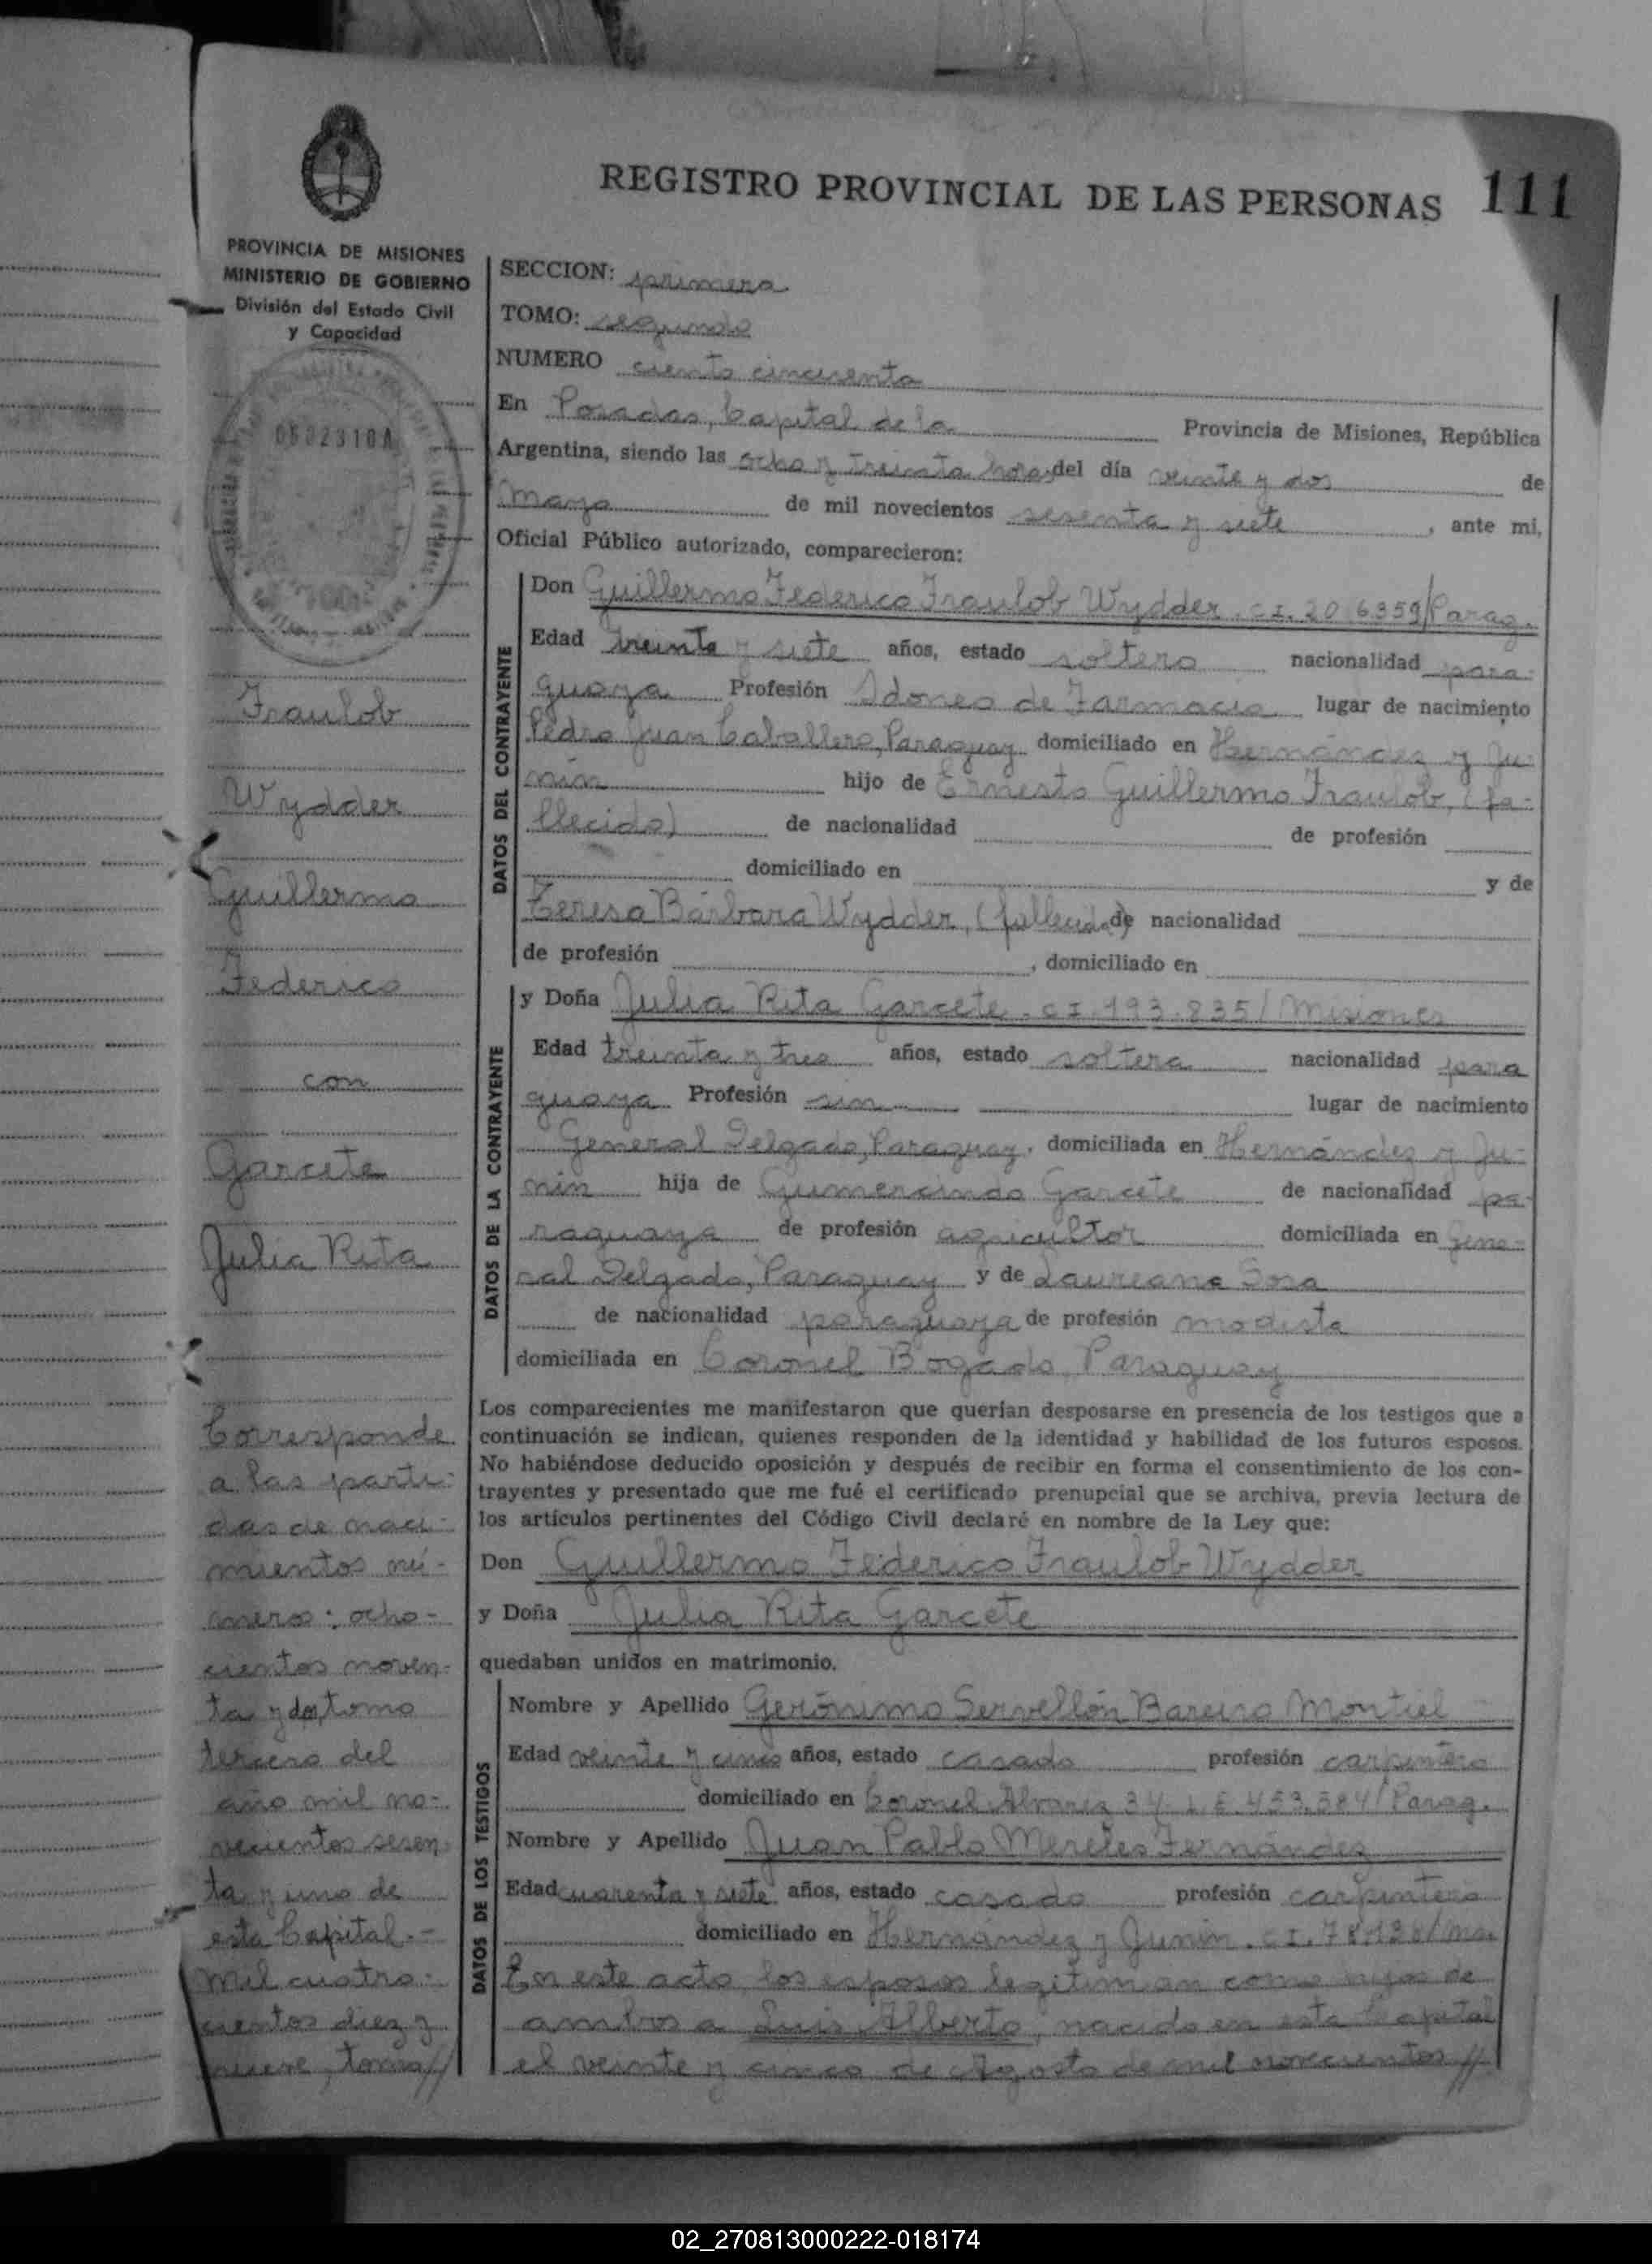 REGISTRO PROVINCIAL DE LAS PERSONAS 111
PROVINCIA DE MISIONES
MINISTERIO DE GOBIERNO
División del Estado Civil
y Capacidad
0502310A
Fraulob
Wydder
Guillermo
Federico
con
Garcete
Julia Rita
Corresponde
a las parti-
das de naci-
mientos nú-
meros: ocho-
cientos noven-
ta y dos, tomo
tercero del
año mil no-
vecientos sesen-
ta y uno de
esta Capital.-
mil cuatro-
cientos diez y
nueve, tomo//
SECCION: primera
TOMO: segundo
NUMERO ciento cincuenta
En Posadas, Capital de la Provincia de Misiones, República
Argentina, siendo las ocho y treinta horas del día veinte y dos de
mayo de mil novecientos sesenta y siete, ante mi,
Oficial Público autorizado, comparecieron:
DATOS DEL CONTRAYENTE
Don Guillermo Federico Fraulob Wydder. CI. 2016359/Parag.
Edad treinta y siete años, estado soltero nacionalidad para-
guaya Profesión Idoneo de Farmacia lugar de nacimiento
Pedro Juan Caballero, Paraguay domiciliado en Hernández y Ju-
nin hijo de Ernesto Guillermo Fraulob, (fa-
llecido) de nacionalidad de profesión
domiciliado en y de
Teresa Bárbara Wydder, (fallecida) de nacionalidad
de profesión , domiciliado en
DATOS DE LA CONTRAYENTE
y Doña Julia Rita Garcete. CI. 193.835/Misiones
Edad treinta y tres años, estado soltera nacionalidad para
guaya Profesión sin lugar de nacimiento
General Delgado, Paraguay. domiciliada en Hernández y Ju-
nin hija de Gumercindo Garcete de nacionalidad pa-
raguaya de profesión agricultor domiciliada en Gene-
ral Delgado, Paraguay y de Laureana Sosa
de nacionalidad paraguaya de profesión modista
domiciliada en Coronel Bogado, Paraguay
Los comparecientes me manifestaron que querían desposarse en presencia de los testigos que a
continuación se indican, quienes responden de la identidad y habilidad de los futuros esposos.
No habiéndose deducido oposición y después de recibir en forma el consentimiento de los con-
trayentes y presentado que me fué el certificado prenupcial que se archiva, previa lectura de
los artículos pertinentes del Código Civil declaré en nombre de la Ley que:
Don Guillermo Federico Fraulob Wydder
y Doña Julia Rita Garcete
quedaban unidos en matrimonio.
DATOS DE LOS TESTIGOS
Nombre y Apellido Gerónimo Servellón Bareiro Montiel
Edad veinte y cinco años, estado casado profesión carpintero
domiciliado en Coronel Alvarez 34. L.E. 453.584/Parag.
Nombre y Apellido Juan Pablo Mereles Fernández
Edad cuarenta y siete años, estado casado profesión carpintero
domiciliado en Hernández y Junin. CI. 78.138/Ms.
En este acto, los esposos legitiman como hijos de
ambos a Luis Alberto, nacido en esta Capital
el veinte y cinco de Agosto de mil novecientos//
02_270813000222-018174